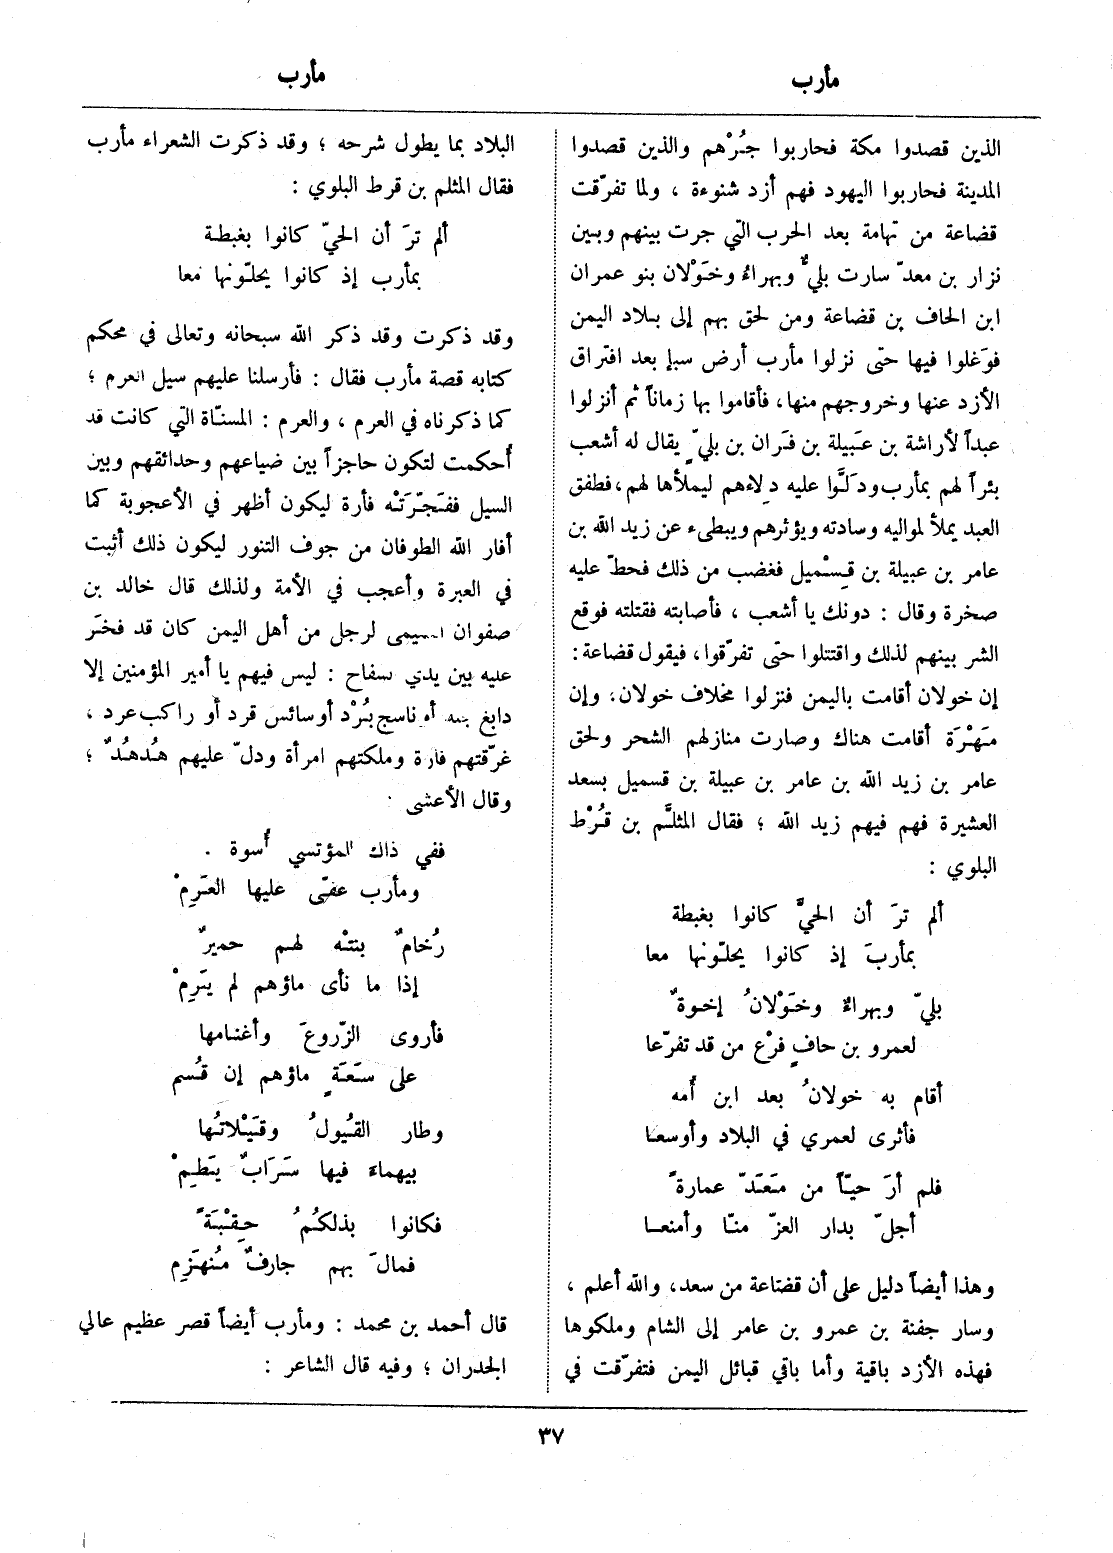 مأرب
مأرب
الذين قصدوا مكة فحاربوا جُرْهم والذين قصدوا
المدينة فحاربوا اليهود فهم أزد شنوءة ، ولما تفرّقت
قضاعة من تهامة بعد الحرب التي جرت بينهم وبين
نزار بن معدّ سارت بليٌّ وبهراءُ وخَوْلان بنو عمران
ابن الحاف بن قضاعة ومن لحق بهم إلى بلاد اليمن
فوَغلوا فيها حتى نزلوا مأرب أرض سبإ بعد افتراق
الأزد عنها وخروجهم منها، فأقاموا بها زماناً ثم أنزلوا
عبداً لأراشة بن عَبيلة بن فَران بن بليّ يقال له أشعب
بئراً لهم بمأرب ودَلَّوا عليه دِلاءهم ليملأها لهم، فطفق
العبد يملأ لمواليه وسادته ويؤثرهم ويبطىء عن زيد الله بن
عامر بن عبيلة بن قِسْميل فغضب من ذلك فحطّ عليه
صخرة وقال : دونك يا أشعب ، فأصابته فقتلته فوقع
الشر بينهم لذلك واقتتلوا حتى تفرّقوا، فيقول قضاعة :
إن خولان أقامت باليمن فنزلوا مخلاف خولان، وإن
مَهْرَة أقامت هناك وصارت منازلهم الشحر ولحق
عامر بن زيد الله بن عامر بن عبيلة بن قسميل بسعد
العشيرة فهم فيهم زيد الله ؛ فقال المثلَّم بن قُرْط
البلوي :
ألم ترَ أن الحيَّ كانوا بغبطة
بمأربَ إذ كانوا يحلّونها معا
بليّ وبهراءُ وخَوْلانُ إخوةٌ
لعمرو بن حافٍ فرْع من قد تفرّعا
أقام به خولانُ بعد ابن أُمه
فأثرى لعمري في البلاد وأوسعا
فلم أرَ حيّاً من مَعَدّ عمارةً
أجلّ بدار العزّ منّا وأمنعا
وهذا أيضاً دليل على أن قضاعة من سعد، والله أعلم ،
وسار جفنة بن عمرو بن عامر إلى الشام وملكوها
فهذه الأزد باقية وأما باقي قبائل اليمن فتفرّقت في
البلاد بما يطول شرحه ؛ وقد ذكرت الشعراء مأرب
فقال المثلم بن قرط البلوي :
ألم ترَ أن الحيّ كانوا بغبطة
بمأرب إذ كانوا يحلّونها معا
وقد ذكرت وقد ذكر الله سبحانه وتعالى في محكم
كتابه قصة مأرب فقال : فأرسلنا عليهم سيل العرم ؛
كما ذكرناه في العرم ، والعرم : المسنّاة التي كانت قد
أُحكمت لتكون حاجزاً بين ضياعهم وحدائقهم وبين
السيل ففَجّرَتْه فأرة ليكون أظهر في الأعجوبة كما
أفار الله الطوفان من جوف التنور ليكون ذلك أثبت
في العبرة وأعجب في الأمة ولذلك قال خالد بن
صفوان التميمي لرجل من أهل اليمن كان قد فخَر
عليه بين يدي السفاح : ليس فيهم يا أمير المؤمنين إلا
دابغ جلد أو ناسج بُرْد أو سائس قرد أو راكب عرد ،
غرّقتهم فارة وملكتهم امرأة ودلّ عليهم هُدهُدٌ ؛
وقال الأعشى :
ففي ذاك المؤتسي أُسوة
ومأرب عفّى عليها العَرِمْ
رُخامٌ بنتْه لهم حميرٌ
إذا ما نأى ماؤهم لم يَرِمْ
فأروى الزّروعَ وأغنامها
على سَعَةٍ ماؤهم إن قُسم
وطار القُيولُ وقَيْلاتُها
بيهماءَ فيها سَرَابٌ يَطِمْ
فكانوا بذلكُمُ حِقْبَةً
فمالَ بهم جارفٌ مُنهَزِم
قال أحمد بن محمد : ومأرب أيضاً قصر عظيم عالي
الجدران ؛ وفيه قال الشاعر :
٣٧